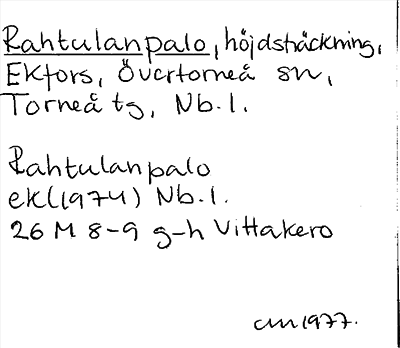 Rahtulanpalo, höjdsträckning,
Ekfors, Övertorneå sn,
Torneå tg, Nb.l.
Rahtulanpalo
ek(1974) Nb.l.
26 M 8-9 g-h Vittakero
cm 1977.